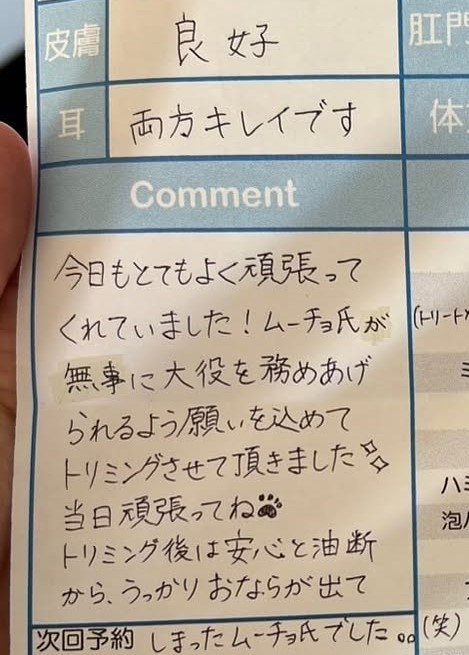 皮膚 良好 肛門
耳 両方キレイです 体
Comment
今日もとてもよく頑張って
くれていました！ムーチョ氏が
無事に大役を務めあげ
られるよう願いを込めて
トリミングさせて頂きました
当日頑張ってね
トリミング後は安心と油断
から、うっかりおならが出て
次回予約 しまったムーチョ氏でした。。(笑)
(トリート
ハミ
泡パ